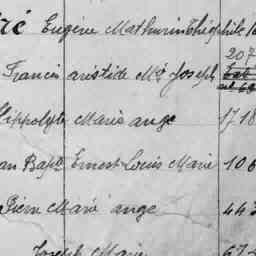 ré Eugène Mathurin Théophile 1
207
Francis aristide Mie Joseph
Hippolyte Marie ange 1718
an Bapte Ernest Louis Marie 106
Pierre Marie ange 447
Joseph Marie 67